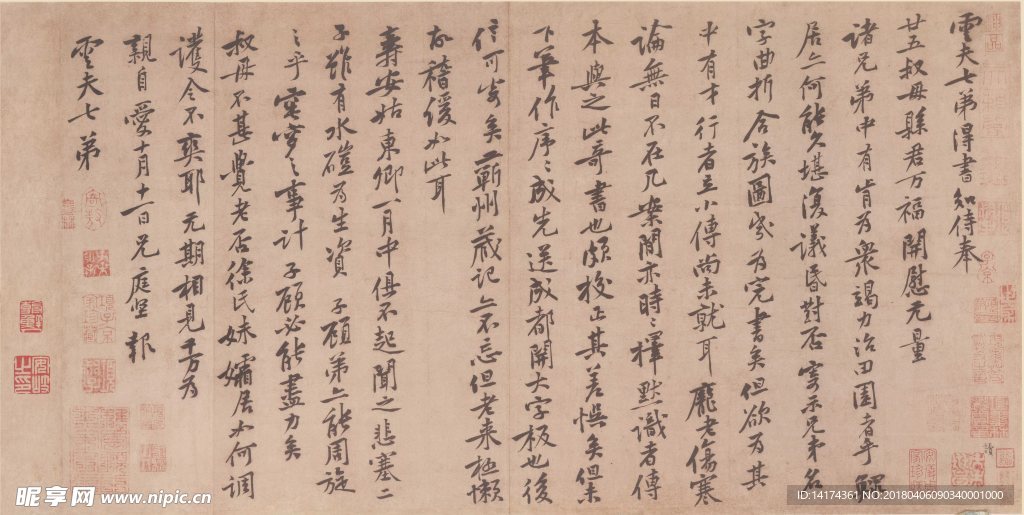 雲夫七弟得書知侍奉
廿五叔母縣君万福開慰无量
諸兄弟中有肯為衆竭力治田園者乎鰥
居亦何能久堪復議昏對否寄示兄弟名
字曲折合族圖甚為完書矣但欲為其
中有才行者立小傳尚未就耳龐老傷寒
論無日不在几案間亦時時擇默識者傳
本與之此奇書也頗校正其差悞矣但未
下筆作序序成先送成都開大字板也後
信可寄矣蘄州藏記亦不忘但老来極懶
故稽緩如此耳
壽安姑東卿一月中俱不起聞之悲塞二
子雖有水磑為生資子顧弟亦能周旋
之乎窀穸之事計子顧必能盡力矣
叔母不甚覺老否徐氏妹孀居如何調
護令不爽耶元期相見千万為
親自愛十月十一日兄庭堅報
雲夫七弟
昵享网 www.nipic.cn
ID:14174361 NO:20180406090340001000